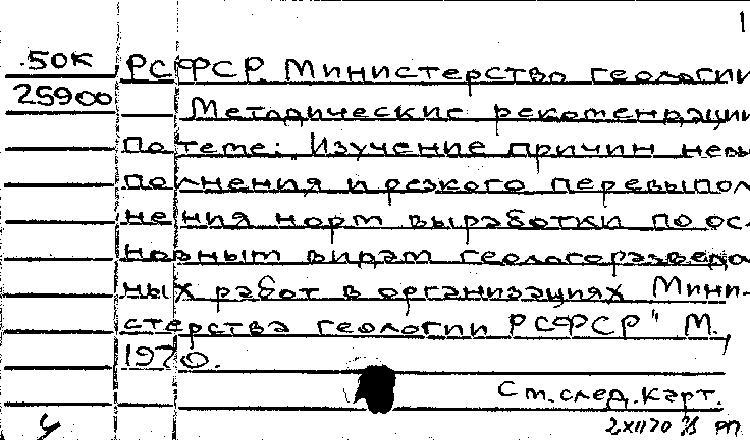 1
.50К
РСФСР. Министерство геологии
25900
Методические рекомендации
по теме: Изучение причин невы
полнения и резкого перевыпол
нения норм выработки по ос
новным видам геологоразведо
ных работ в организациях Мини-
стерства геологии РСФСР" М.,
1970.
См. след. карт.
2XII70